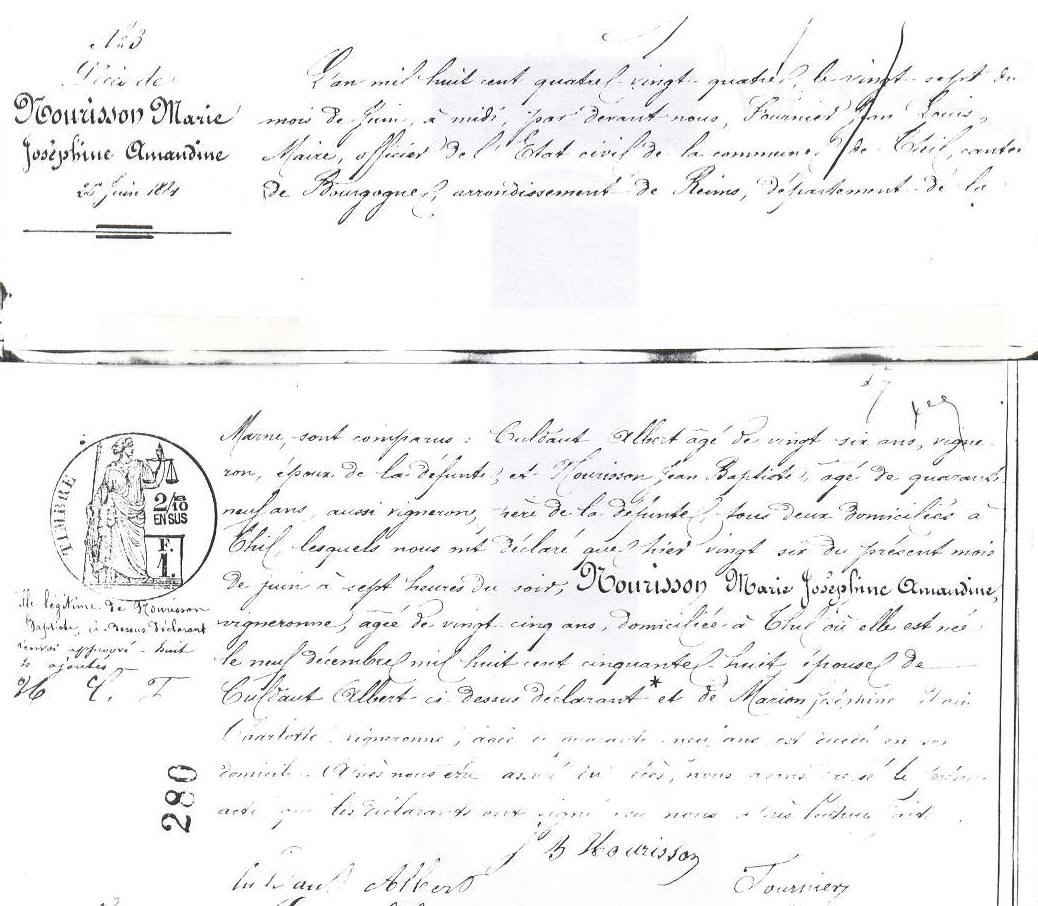 N° 3
Décès de
Nourisson Marie
Joséphine Amandine
26 Juin 1884
L'an mil huit cent quatre vingt quatre, le vingt sept du
mois de Juin, à midi, par devant nous, Fournier Jean Louis,
Maire, officier de l'Etat civil de la commune de Thil, canton
de Bourgogne, arrondissement de Reims, département de la
Marne, sont comparus : Culdaut Albert âgé de vingt six ans, vigne
ron, époux de la défunte, et Nourisson Jean Baptiste, âgé de quarante
neuf ans, aussi vigneron, père de la défunte, tous deux domiciliés à
Thil, lesquels nous ont déclaré que hier vingt six du présent mois
de juin à sept heures du soir, Nourisson Marie Joséphine Amandine,
vigneronne, agée de vingt cinq ans, domiciliée à Thil où elle est née
le neuf décembre mil huit cent cinquante huit épouse de
Culdaut Albert ci dessus déclarant * et de Marion Joséphine
Charlotte, vigneronne, agée de quarante neuf ans est décédée en son
domicile. Après nous être assuré du décès, nous avons dressé le présent
acte que les déclarants ont signé avec nous après lecture faite.
TIMBRE
2/10 EN SUS
F. 1.
fille légitime de Nourisson
Baptiste, ci dessus déclarant
renvoi approuvé huit
ajoutés
N C. F
280
J B Nourisson
Culdaut Albert
Fournier